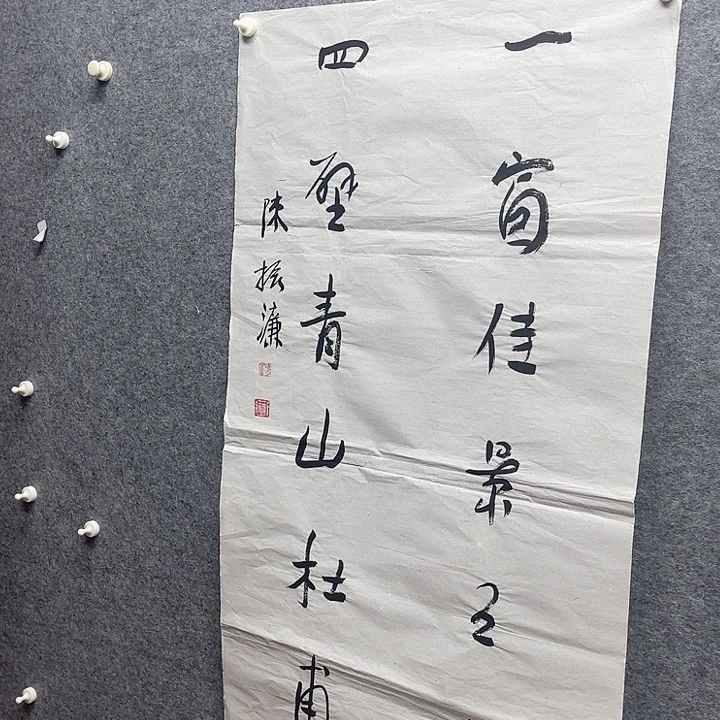 一窗佳景王
四壁青山杜甫
陈振濂